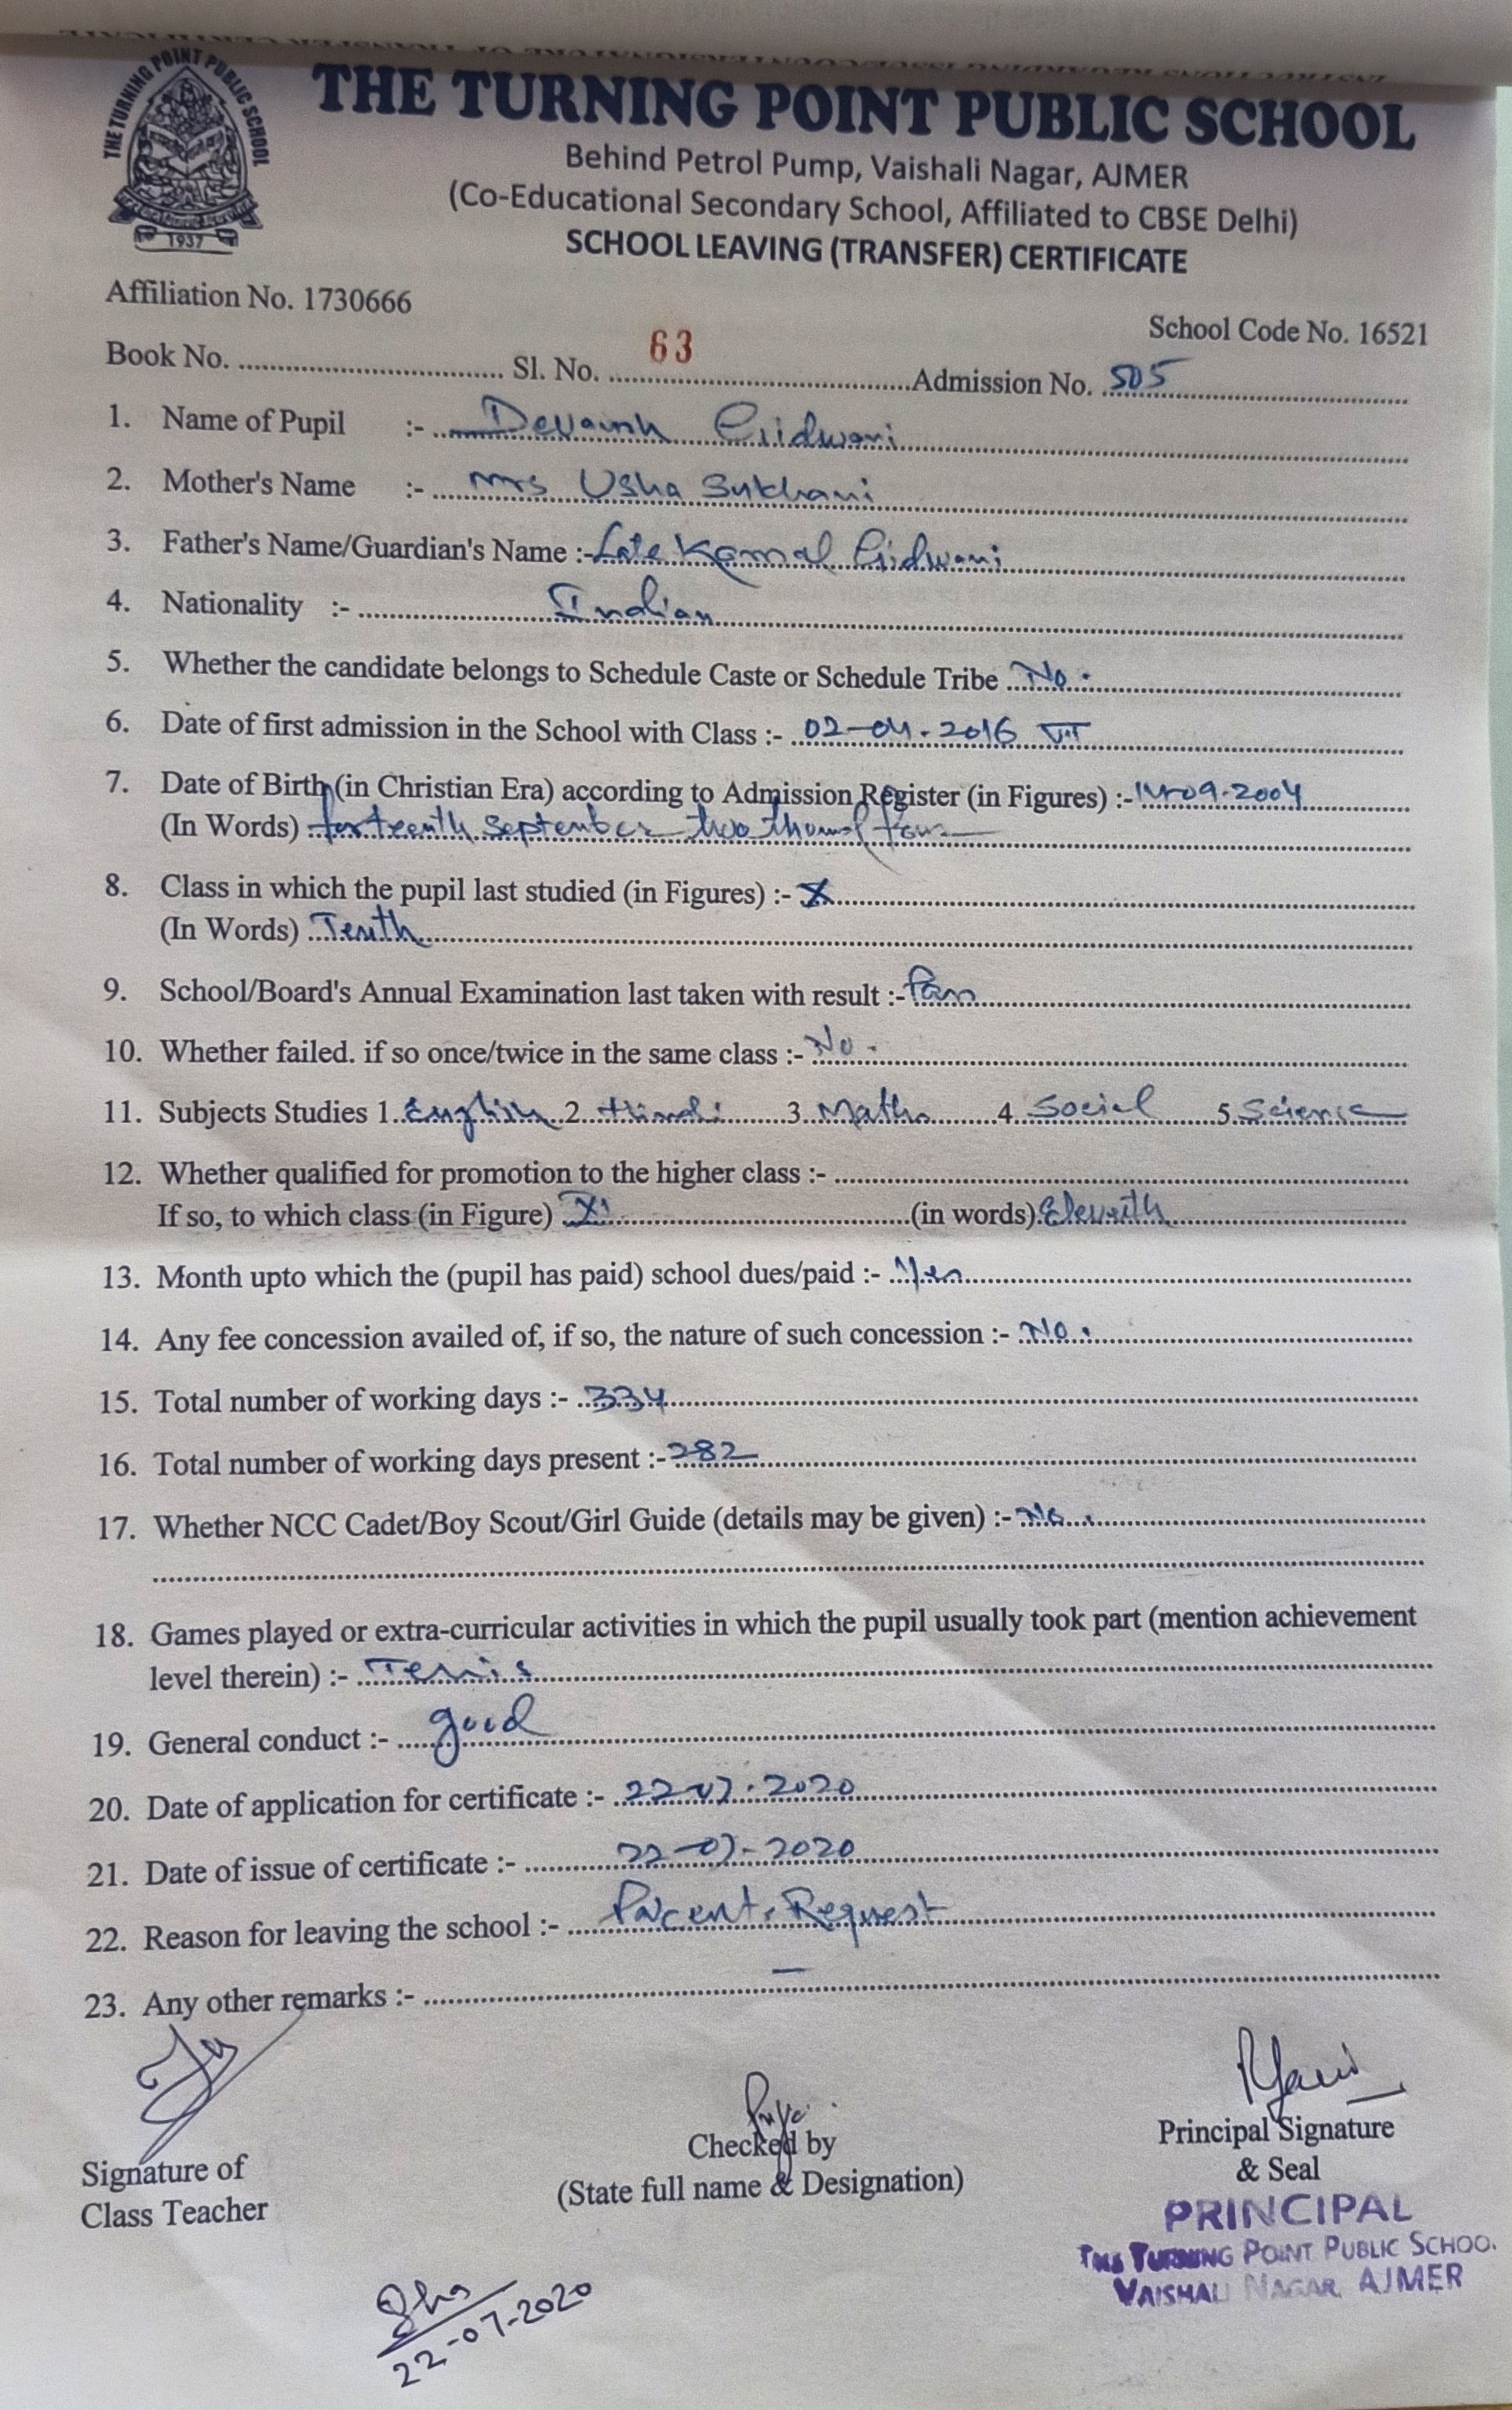 THE TURNING POINT PUBLIC SCHOOL
1937
THE TURNING POINT PUBLIC SCHOOL
Behind Petrol Pump, Vaishali Nagar, AJMER
(Co-Educational Secondary School, Affiliated to CBSE Delhi)
SCHOOL LEAVING (TRANSFER) CERTIFICATE
Affiliation No. 1730666
School Code No. 16521
Book No. Sl. No. 63 Admission No. 505
1. Name of Pupil :- Devansh Gidwani
2. Mother's Name :- Mrs Usha Sukhani
3. Father's Name/Guardian's Name :- Late Kamal Gidwani
4. Nationality :- Indian
5. Whether the candidate belongs to Schedule Caste or Schedule Tribe No.
6. Date of first admission in the School with Class :- 02-04-2016
7. Date of Birth (in Christian Era) according to Admission Register (in Figures) :- 14-09-2004
(In Words) forteenth September two four
8. Class in which the pupil last studied (in Figures) :- X
(In Words) Tenth
9. School/Board's Annual Examination last taken with result :- Pass
10. Whether failed. if so once/twice in the same class :- No.
11. Subjects Studies 1. English 2. Hindi 3. Maths 4. Social 5. Science
12. Whether qualified for promotion to the higher class :-
If so, to which class (in Figure) XI (in words) Eleventh
13. Month upto which the (pupil has paid) school dues/paid :- Yes
14. Any fee concession availed of, if so, the nature of such concession :- No.
15. Total number of working days :- 334
16. Total number of working days present :- 282
17. Whether NCC Cadet/Boy Scout/Girl Guide (details may be given) :- No.
18. Games played or extra-curricular activities in which the pupil usually took part (mention achievement
level therein) :- Tennis
19. General conduct :- good
20. Date of application for certificate :- 22-07-2020
21. Date of issue of certificate :- 22-07-2020
22. Reason for leaving the school :- Parent. Request
23. Any other remarks :- —
Signature of
Class Teacher
Checked by
(State full name & Designation)
Principal Signature
& Seal
PRINCIPAL
THE TURNING POINT PUBLIC SCHOO
VAISHALI NAGAR, AJMER
22-07-2020